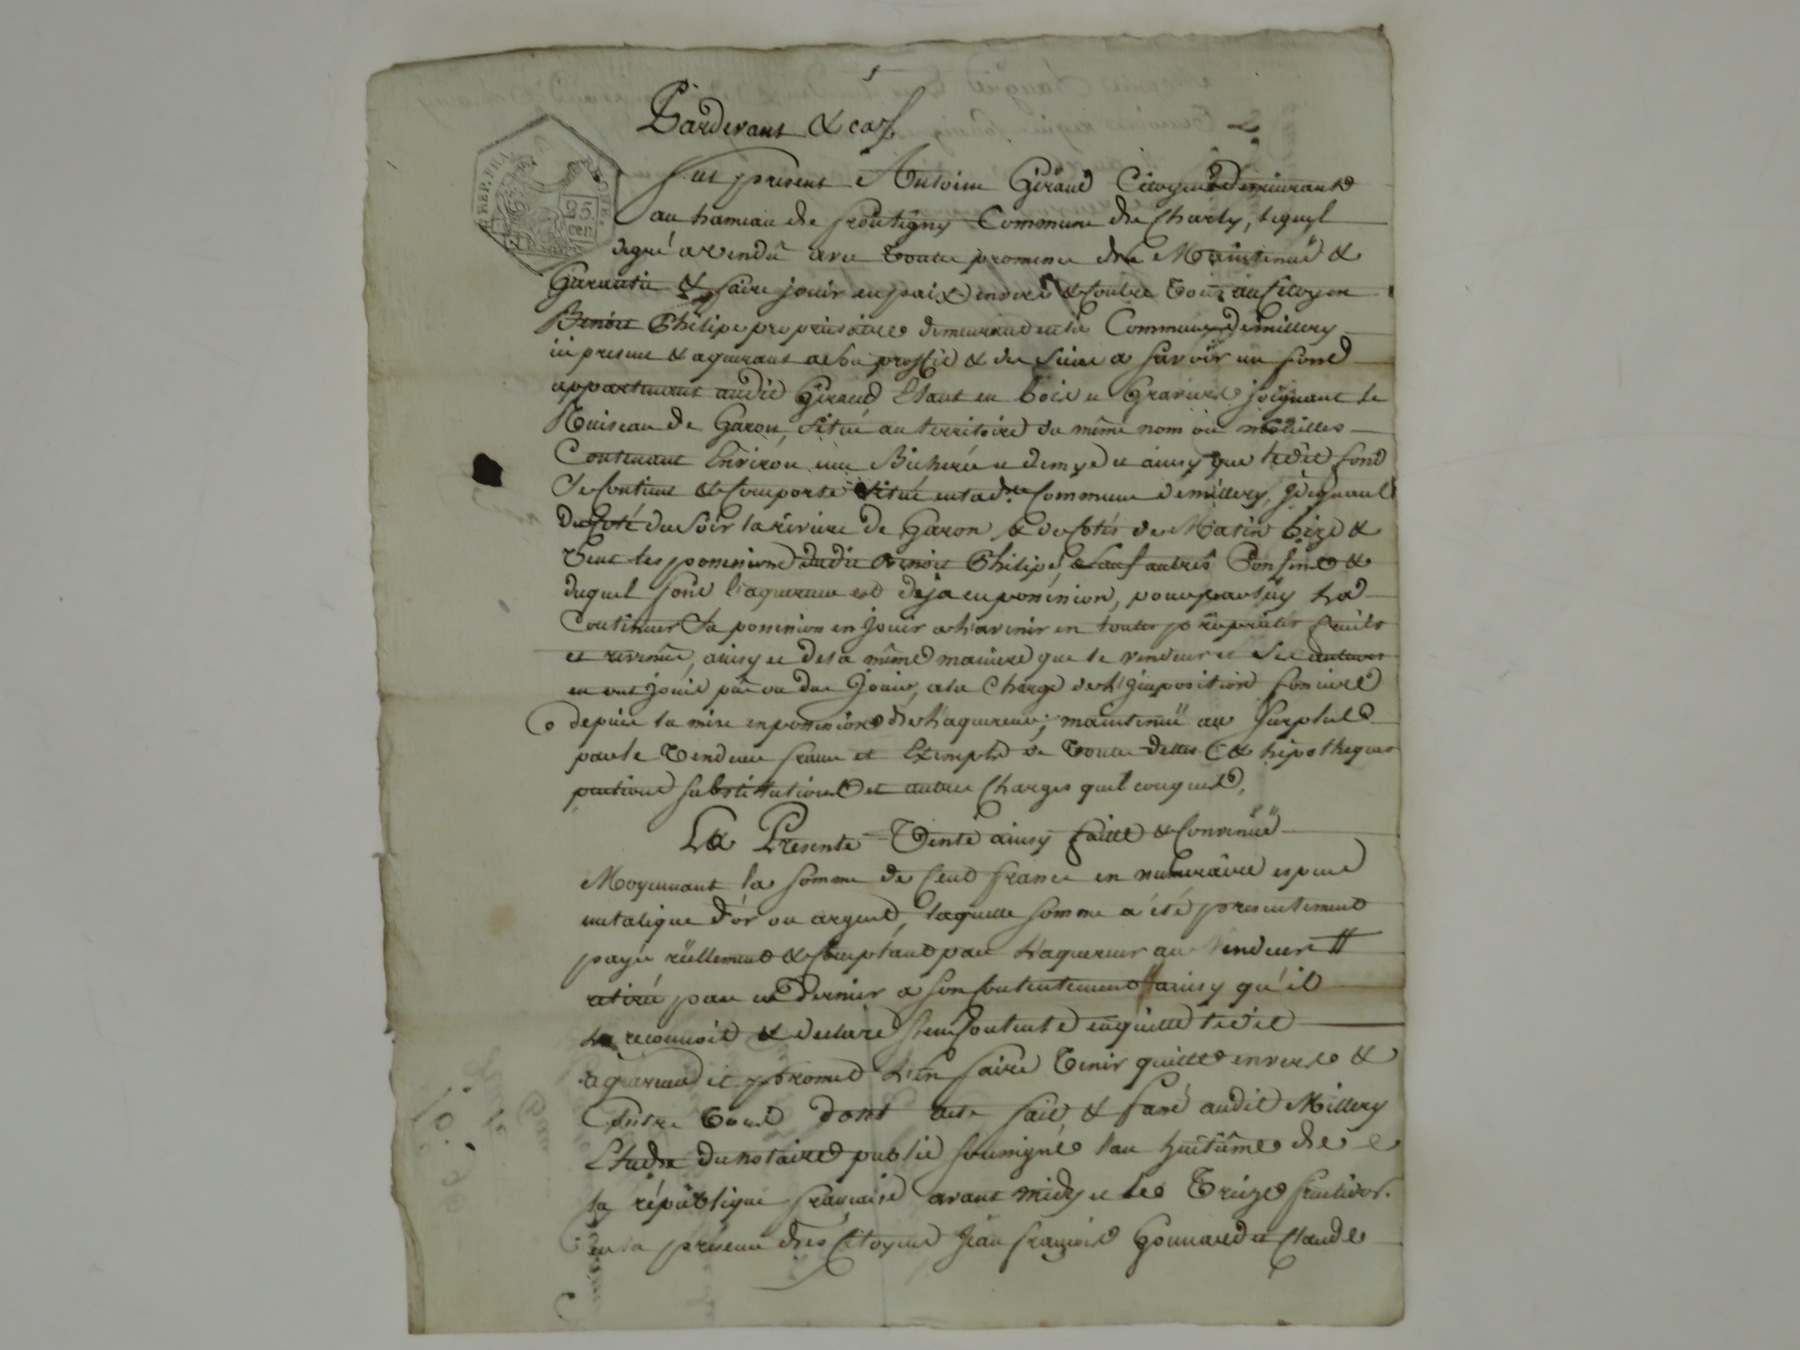 Pardevant &ca
REP. FRA.
25
cen
fut present Antoine Giraud Citoyen demeurant
au hameau de frontigny Commune de Charly, lequel
degré a vendu avec toute promesse de Maintenüe &
Garantie & faire jouir en paix envers & Contre Tous au Citoyen
Benoit Philipe proprietaire demeurant en la Commune de millery
ici present & aquerant a son proffit & des siens a savoir un fond
appartenant audit Giraud Etant en bois et Gravier joignant le
Ruiseau de Garon, situé au territoire du même nom ou
Contenant Environ une Bicherée et demye et ainsy que ledit fond
se Contient & Comporte situé en lad.te Commune de millery, joignant
du Coté du soir la riviere de Garon & de Cotés de Matin bize &
vent les possessions dudit Benoit Philipe, sauf autres Confins &
duquel fond l'aquereur est déja en possession, pour par luy
Continuer sa possession en jouir a l'avenir en toutes proprietés fruits
et revenus, ainsy et de la même maniere que le vendeur et ses auteurs
en ont joüi pû ou due joüir, a la Charge de l'imposition fonciere
depuis la mise en possession de l'aquereur; maintenüe au surplus
par le Vendeur franc et Exempt de toutes dettes & hipotheques
pentions substitutions et autres Charges quelconques,
La Presente Vente ainsy faitte & Convenüe
Moyennant la somme de Cent francs en numeraire espece
metalique d'or ou argent, laquelle somme a été presentement
payée reëllement & Comptant par l'aquereur au Vendeur #
retiré par ce dernier a son Contentement # ainsy qu'il
le reconnoit & declare s'en Contente en quitte ledit
aquereur et promet l'en faire Tenir quitte envers &
Contre Tous dont acte fait & passé audit Millery
Etude du notaire public soussigné l'an huitième de
la république française avant midy et le Treize fructidor.
en la présence des Citoyens Jean françois Gonnard et Claude